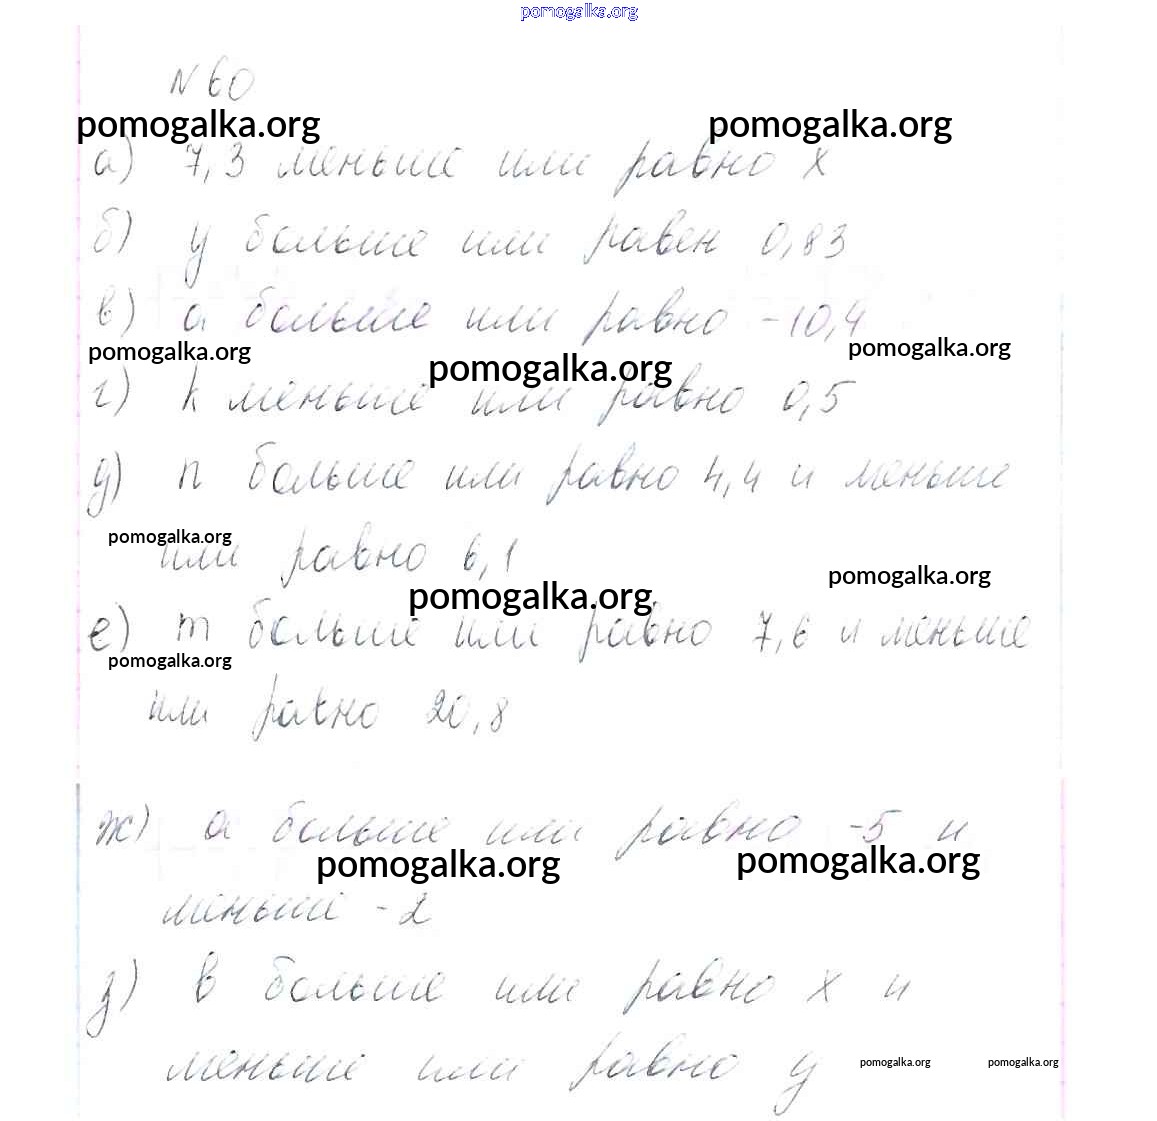 pomogalka.org
N 60
pomogalka.org pomogalka.org
а) 7,3 меньше или равно x
б) y больше или равен 0,83
в) a больше или равно -10,4
pomogalka.org pomogalka.org pomogalka.org
г) k меньше или равно 0,5
д) n больше или равно 4,4 и меньше
pomogalka.org
или равно 6,1
pomogalka.org pomogalka.org
е) m больше или равно 7,6 и меньше
pomogalka.org
или равно 20,8
ж) a больше или равно -5 и
pomogalka.org pomogalka.org
меньше -2
з) в больше или равно x и
меньше или равно y
pomogalka.org pomogalka.org